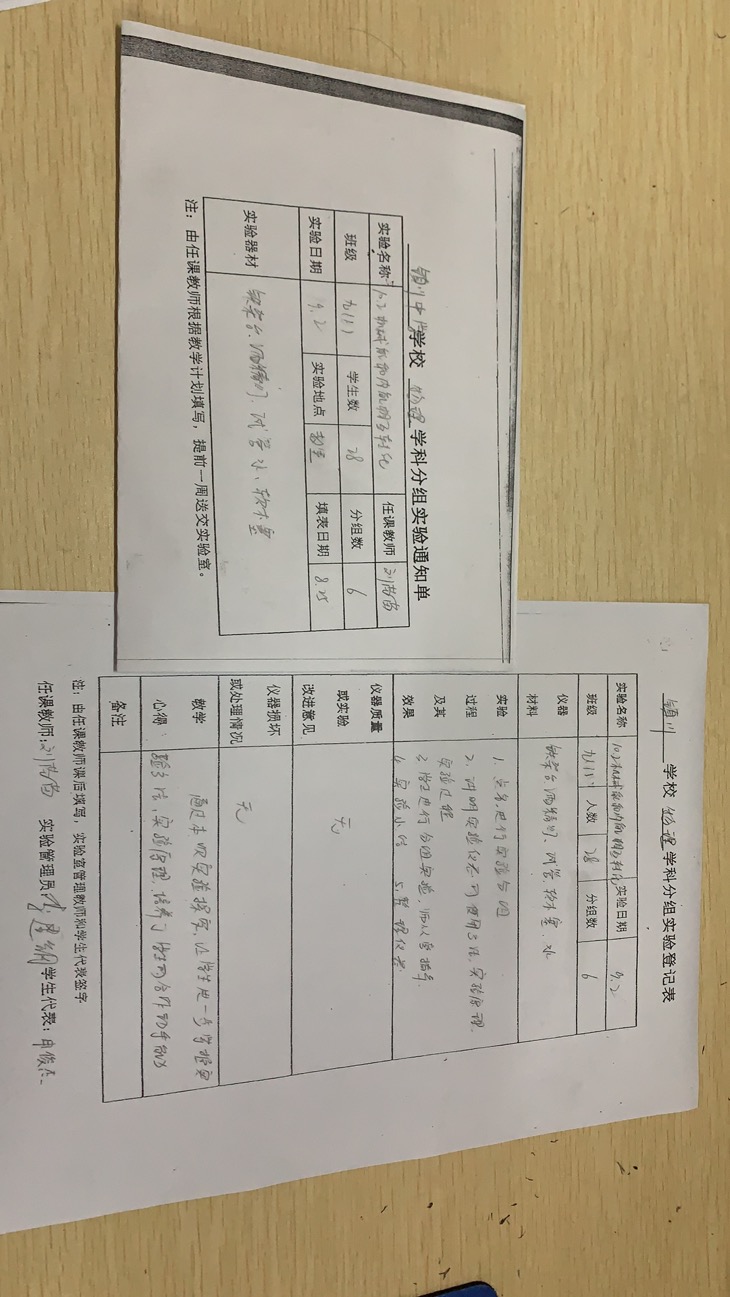 颍川中学学校 物理 学科分组实验通知单
实验名称 10.2机械能和内能的相互转化 任课教师
班级 九(1) 学生数 28 分组数 6
实验日期 9.2 实验地点 填表日期 8.25
实验器材 铁架台、酒精灯、试管、水、软木塞
注：由任课教师根据教学计划填写，提前一周送交实验室。
颍川 学校 物理 学科分组实验登记表
实验名称 10.2机械能和内能的相互转化 实验日期 9.2
班级 九(1) 人数 28 分组数 6
仪器
材料
铁架台、酒精灯、试管、软木塞、水
实验
过程
及其
效果
1、点名，进行实验分组
2、讲明实验仪器的使用方法，实验原理，
实验过程
3、学生进行分组实验，师以室指导
4、实验小结 5、整理仪器
仪器质量
或实验
改进意见
无
仪器损坏
或处理情况
无
教学
心得：
通过本次实验探究，让学生进一步掌握实
验方法，实验原理，培养了学生的合作动手能力
备注
注：由任课教师课后填写，实验室管理教师和学生代表签字
任课教师： 实验管理员： 学生代表：